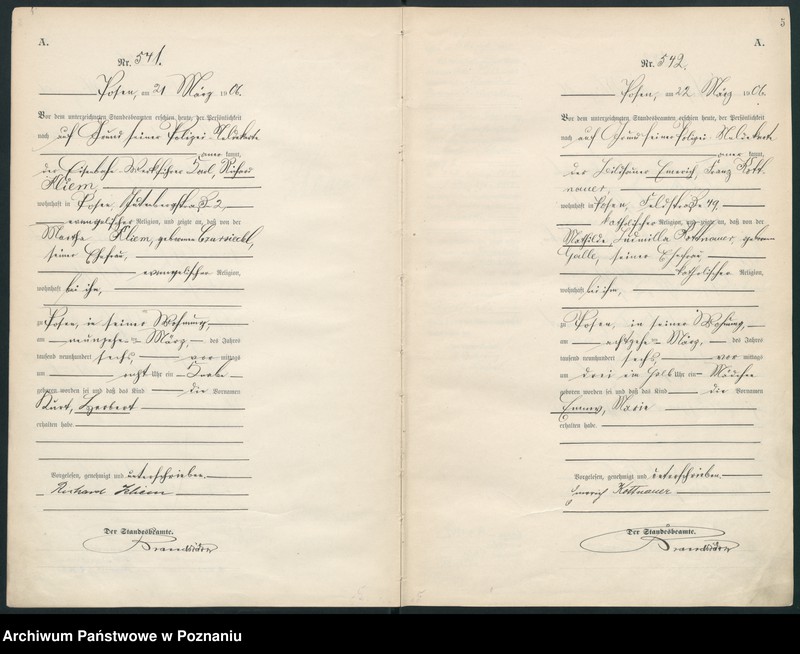 A.
Nr. 541.
Posen, am 21 März 1906.
Vor dem unterzeichneten Standesbeamten erschien heute, der Persönlichkeit
nach auf Grund seiner Polizei Meldekarte
kannt,
der Eisenbahn Werkführer Karl, Richard
Kliem,
wohnhaft in Posen, Gutenbergstraße 2
evangelischer Religion, und zeigte an, daß von der
Martha Kliem, geborene
seiner Ehefrau,
evangelischer Religion,
wohnhaft bei ihm,
zu Posen, in seiner Wohnung,
am März, des Jahres
tausend neunhundert sechs, vor mittags
um acht Uhr ein Knabe
geboren worden sei und daß das Kind die Vornamen
Kurt, Herbert
erhalten habe
Vorgelesen, genehmigt und unterschrieben.
Richard Kliem
Der Standesbeamte.
5
A.
Nr. 542.
Posen, am 22 März 1906.
Vor dem unterzeichneten Standesbeamten erschien heute, der Persönlichkeit
nach auf Grund seiner Polizei Meldekarte
kannt,
der Bildhauer Emerich, Franz Kott-
nauer,
wohnhaft in Posen, Feldstraße 49
katholischer Religion, und zeigte an, daß von der
Mathilde, Ludmilla Kottnauer, geborene
Galle, seiner Ehefrau
katholischer Religion,
wohnhaft bei ihm,
zu Posen, in seiner Wohnung,
am achtzehn März, des Jahres
tausend neunhundert sechs, vor mittags
um drei ein halb Uhr ein Mädchen
geboren worden sei und daß das Kind die Vornamen
Emmy, Marie
erhalten habe.
Vorgelesen, genehmigt und unterschrieben.
Emerich Kottnauer
Der Standesbeamte.
Archiwum Państwowe w Poznaniu